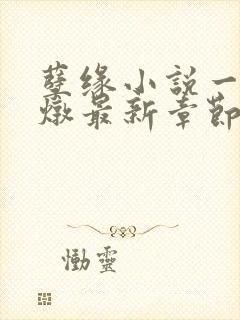 孽缘小説一
燉最新章節
慟靈